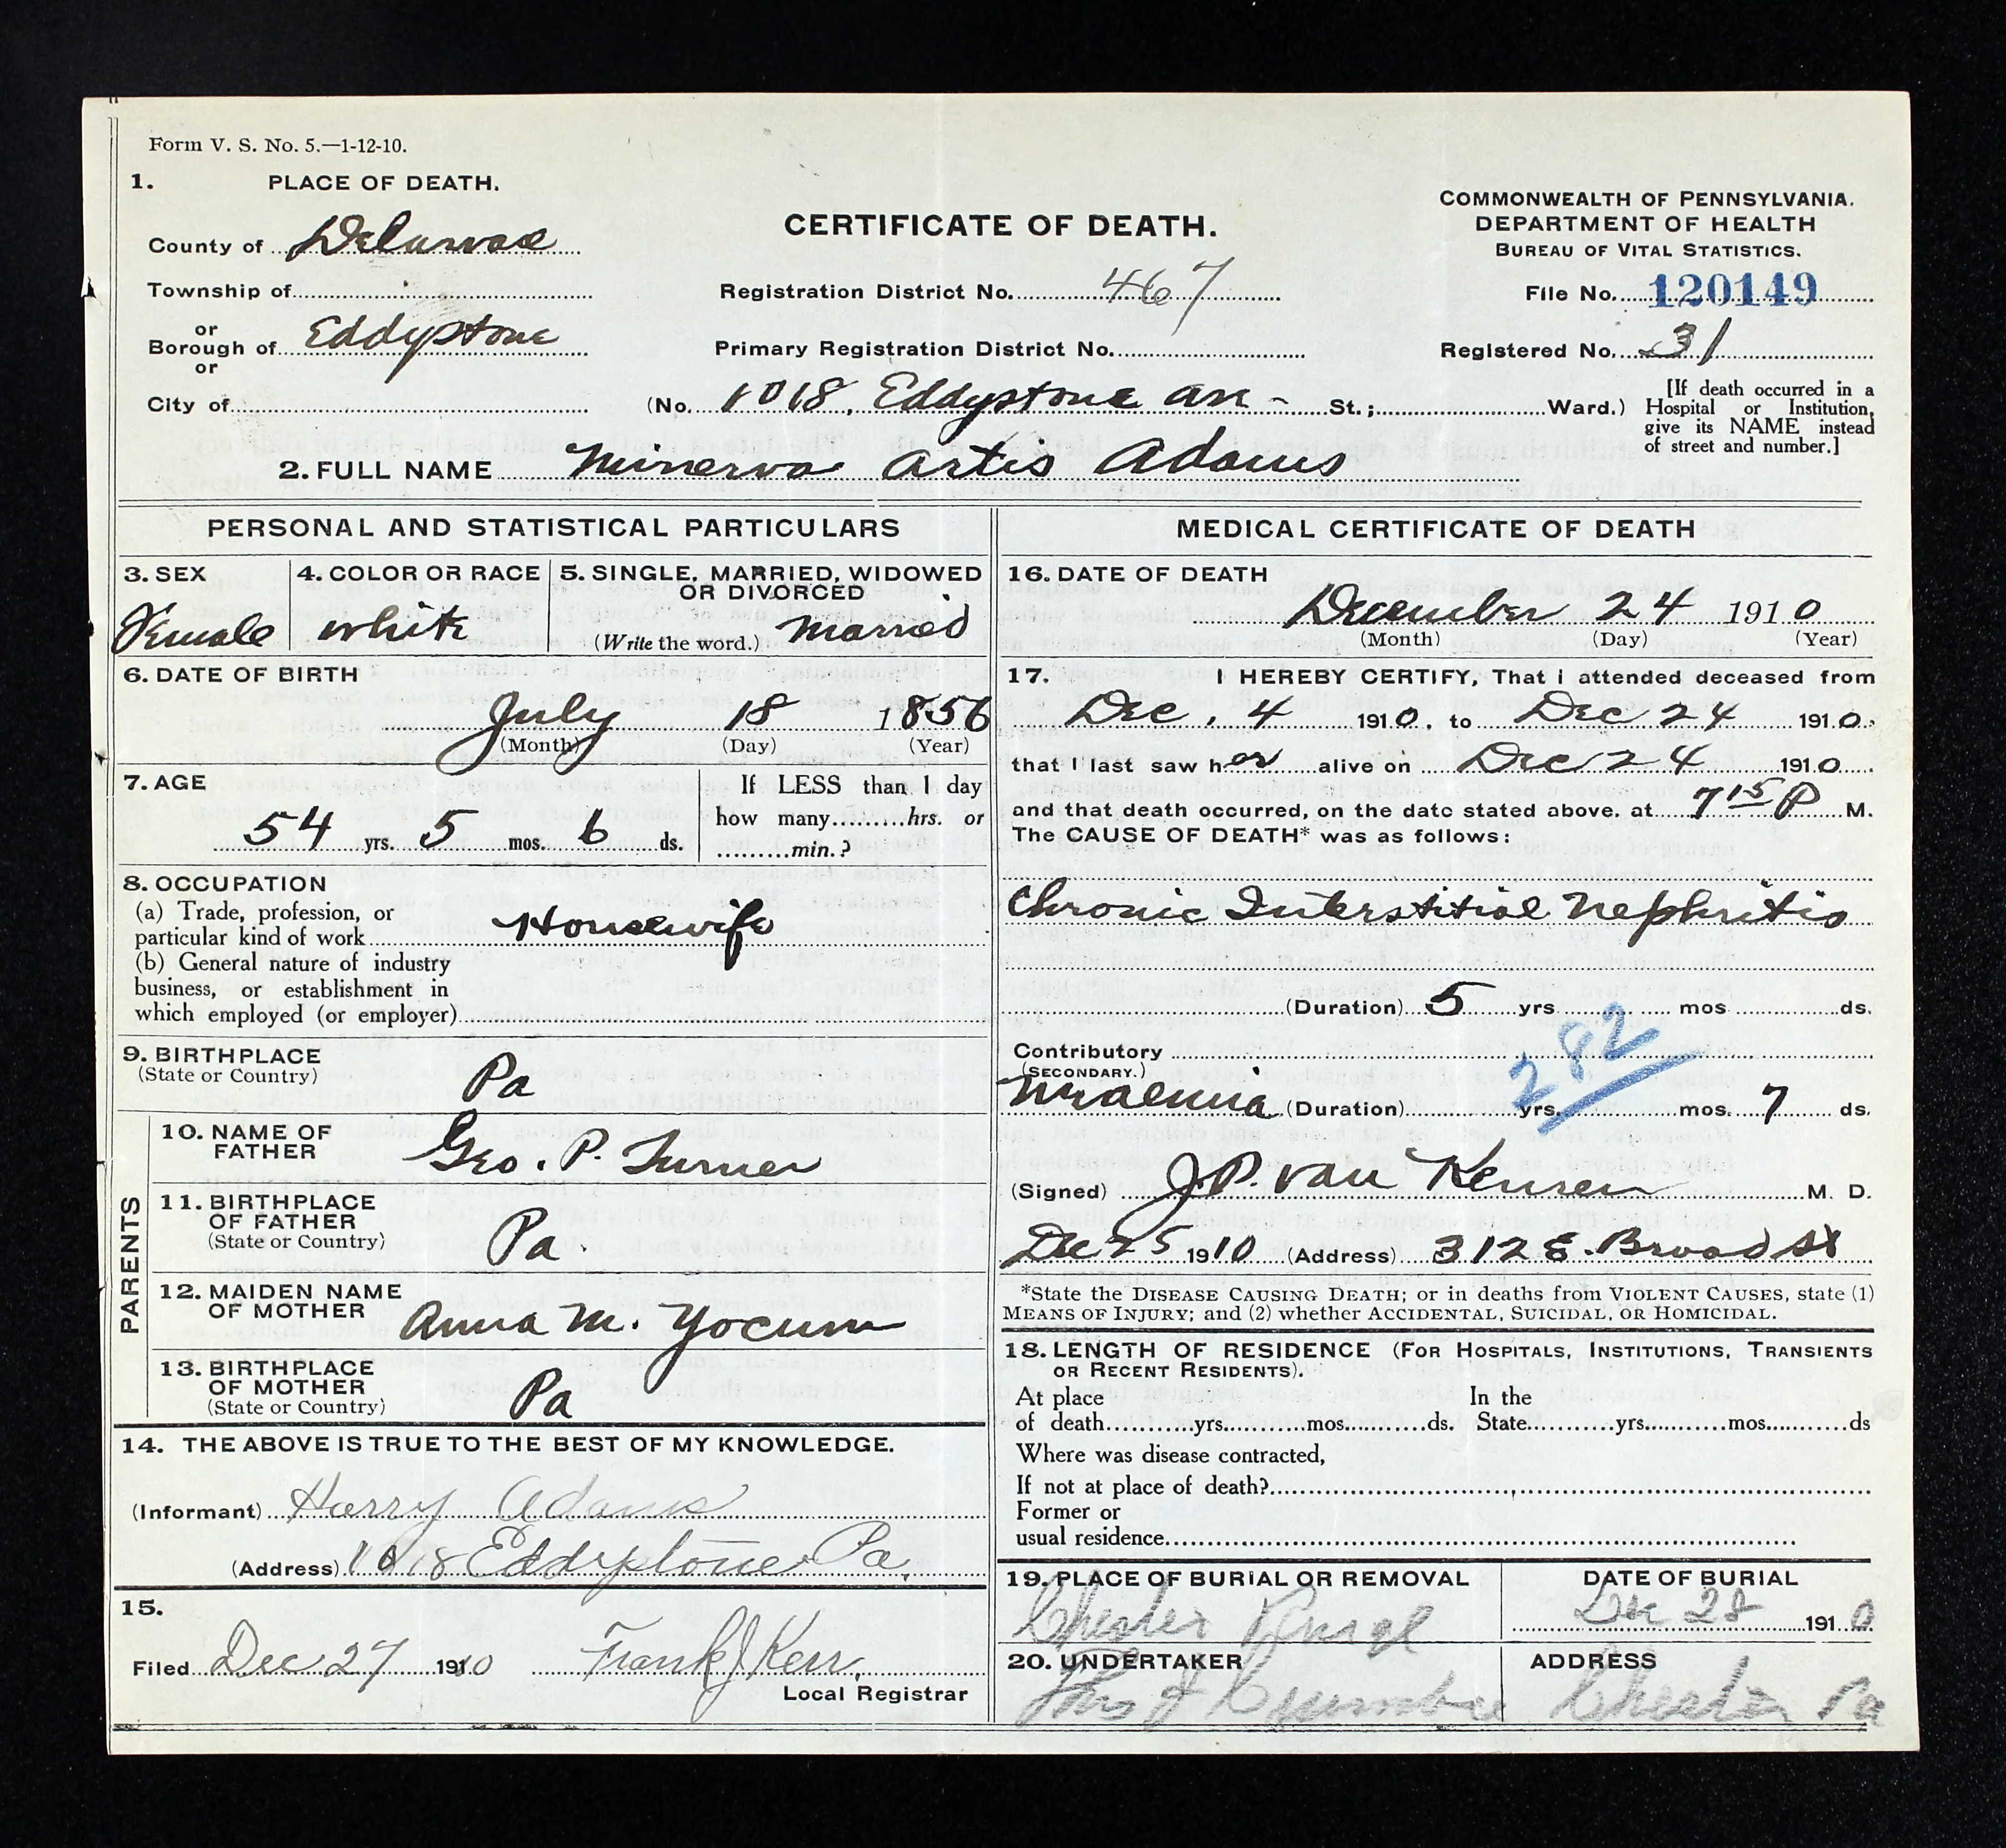 Form V. S. No. 5.—1-12-10.
1. PLACE OF DEATH.
County of Delaware
Township of
or
Borough of Eddystone
or
City of
CERTIFICATE OF DEATH.
Registration District No. 467
Primary Registration District No.
(No. 1018, Eddystone Ave - St.; Ward.)
COMMONWEALTH OF PENNSYLVANIA.
DEPARTMENT OF HEALTH
BUREAU OF VITAL STATISTICS.
File No. 120149
Registered No. 31
[If death occurred in a
Hospital or Institution,
give its NAME instead
of street and number.]
2. FULL NAME Minerva Artis Adams
PERSONAL AND STATISTICAL PARTICULARS
3. SEX
Female
4. COLOR OR RACE
White
5. SINGLE, MARRIED, WIDOWED
OR DIVORCED
(Write the word.) Married
6. DATE OF BIRTH
July 18 1856
(Month) (Day) (Year)
7. AGE
54 yrs. 5 mos. 6 ds.
If LESS than 1 day
how many hrs. or
min.?
8. OCCUPATION
(a) Trade, profession, or
particular kind of work Housewife
(b) General nature of industry
business, or establishment in
which employed (or employer)
9. BIRTHPLACE
(State or Country)
Pa
PARENTS
10. NAME OF
FATHER
Geo. P. Turner
11. BIRTHPLACE
OF FATHER
(State or Country)
Pa.
12. MAIDEN NAME
OF MOTHER
Anna M. Yocum
13. BIRTHPLACE
OF MOTHER
(State or Country)
Pa
14. THE ABOVE IS TRUE TO THE BEST OF MY KNOWLEDGE.
(Informant) Harry Adams
(Address) 1018 Eddystone Pa.
15.
Filed Dec 27 1910 Frank J Kerr,
Local Registrar
MEDICAL CERTIFICATE OF DEATH
16. DATE OF DEATH
December 24 1910
(Month) (Day) (Year)
17. I HEREBY CERTIFY, That I attended deceased from
Dec. 4 1910. to Dec 24 1910.
that I last saw her alive on Dec 24 1910
and that death occurred, on the date stated above, at 7 15 P M.
The CAUSE OF DEATH* was as follows:
Chronic Interstitial Nephritis
(Duration) 5 yrs mos ds.
Contributory
(SECONDARY.)
Uraemia (Duration) yrs. mos. 7 ds.
(Signed) J. P. Van Keuren M. D.
Dec 25 1910 (Address) 312 E. Broad St
*State the DISEASE CAUSING DEATH; or in deaths from VIOLENT CAUSES, state (1)
MEANS OF INJURY; and (2) whether ACCIDENTAL, SUICIDAL, OR HOMICIDAL.
18. LENGTH OF RESIDENCE (FOR HOSPITALS, INSTITUTIONS, TRANSIENTS
OR RECENT RESIDENTS).
At place In the
of death yrs. mos. ds. State yrs. mos. ds
Where was disease contracted,
If not at place of death?
Former or
usual residence
19. PLACE OF BURIAL OR REMOVAL
Chester Rural
DATE OF BURIAL
Dec 28 1910
20. UNDERTAKER
ADDRESS
Chester Pa